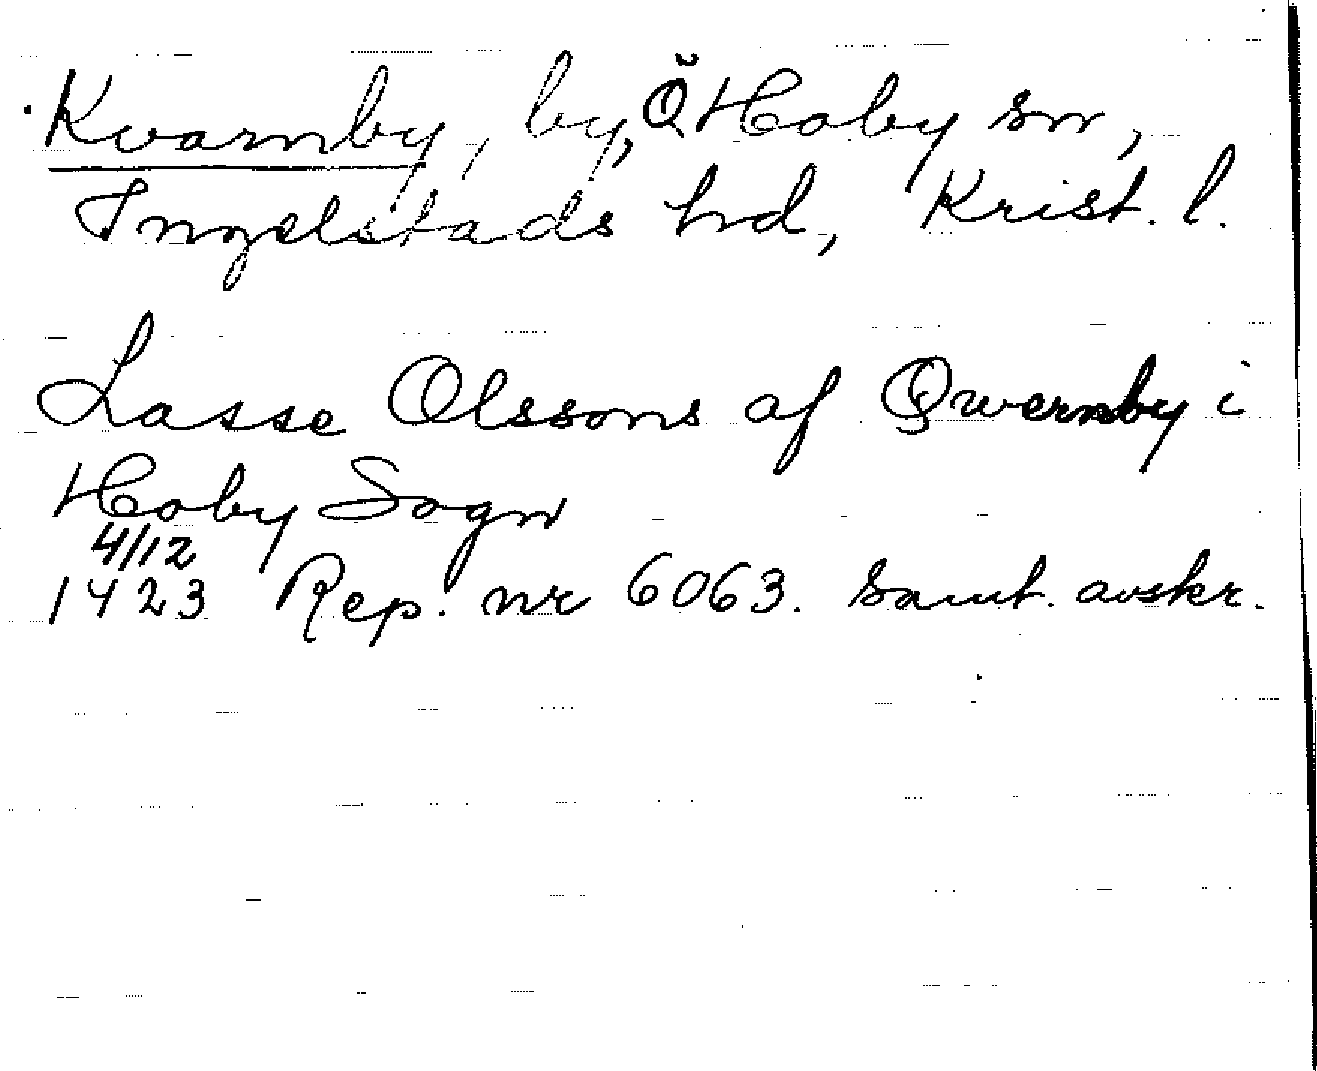 Kvarnby, by, Ö Hoby sn,
Ingelstads hd, Krist. l.
Lasse Olssons af Qwernby i
Hoby Sogn
4/12
1423 Rep. nr 6063. Samt. avskr.